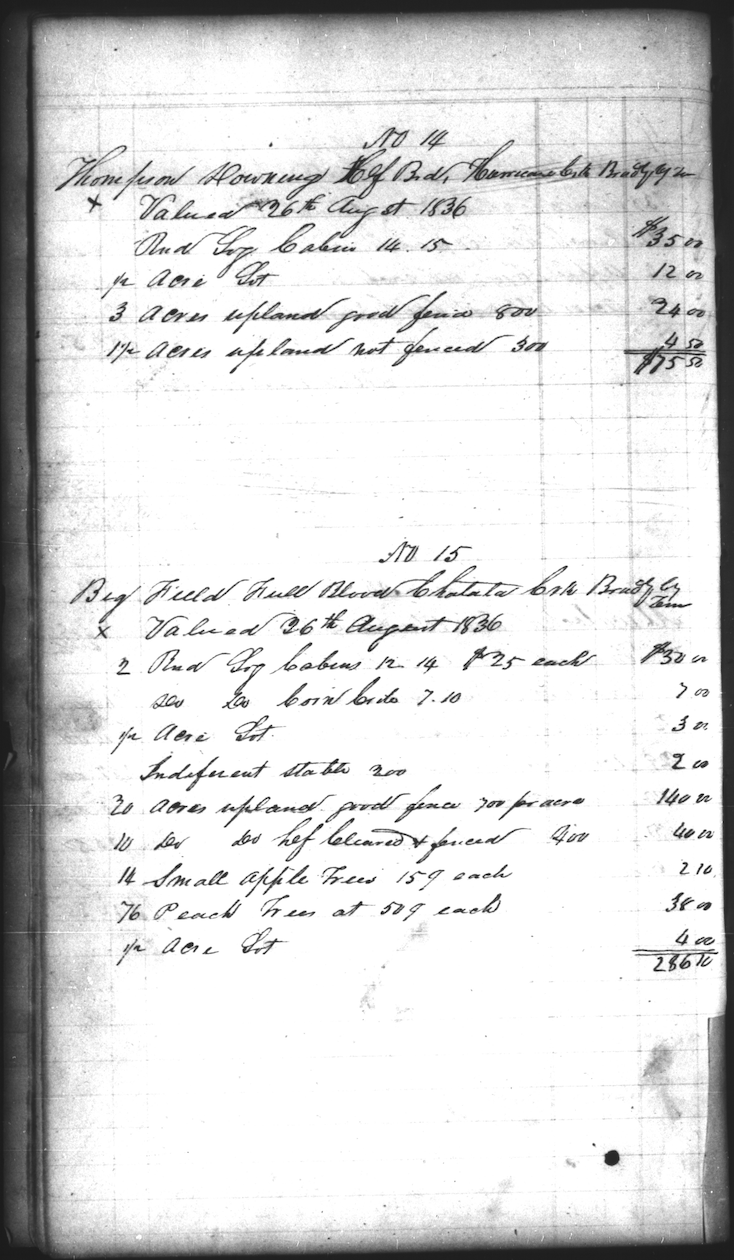 No 14
Thompson Downing Hlf Brd, Hurricane Crk Brady Cy Ten
x Valued 26th Augst 1836
Rnd Log Cabin 14. 15 $35 00
1/2 Acre Lot 12 00
3 Acres upland good fence 800 24 00
1 1/2 Acres upland not fenced 300 4 50
$75 50
No 15
Big Field Full Blood Chatata Crk Brady Cy Tenn
x Valued 26th August 1836
2 Rnd Log Cabins 12 14 $25 each $30 00
Do Do Corn Crib 7.10 7 00
1/2 Acre Lot 3 00
Indiferent stable 200 2 00
20 Acres upland good fence 700 per acre 140 00
10 Do Do hlf Cleared & fenced 400 40 00
14 Small Apple Trees 15 each 2 10
76 Peach Trees at 50 each 38 00
1/2 Acre Lot 4 00
286 10